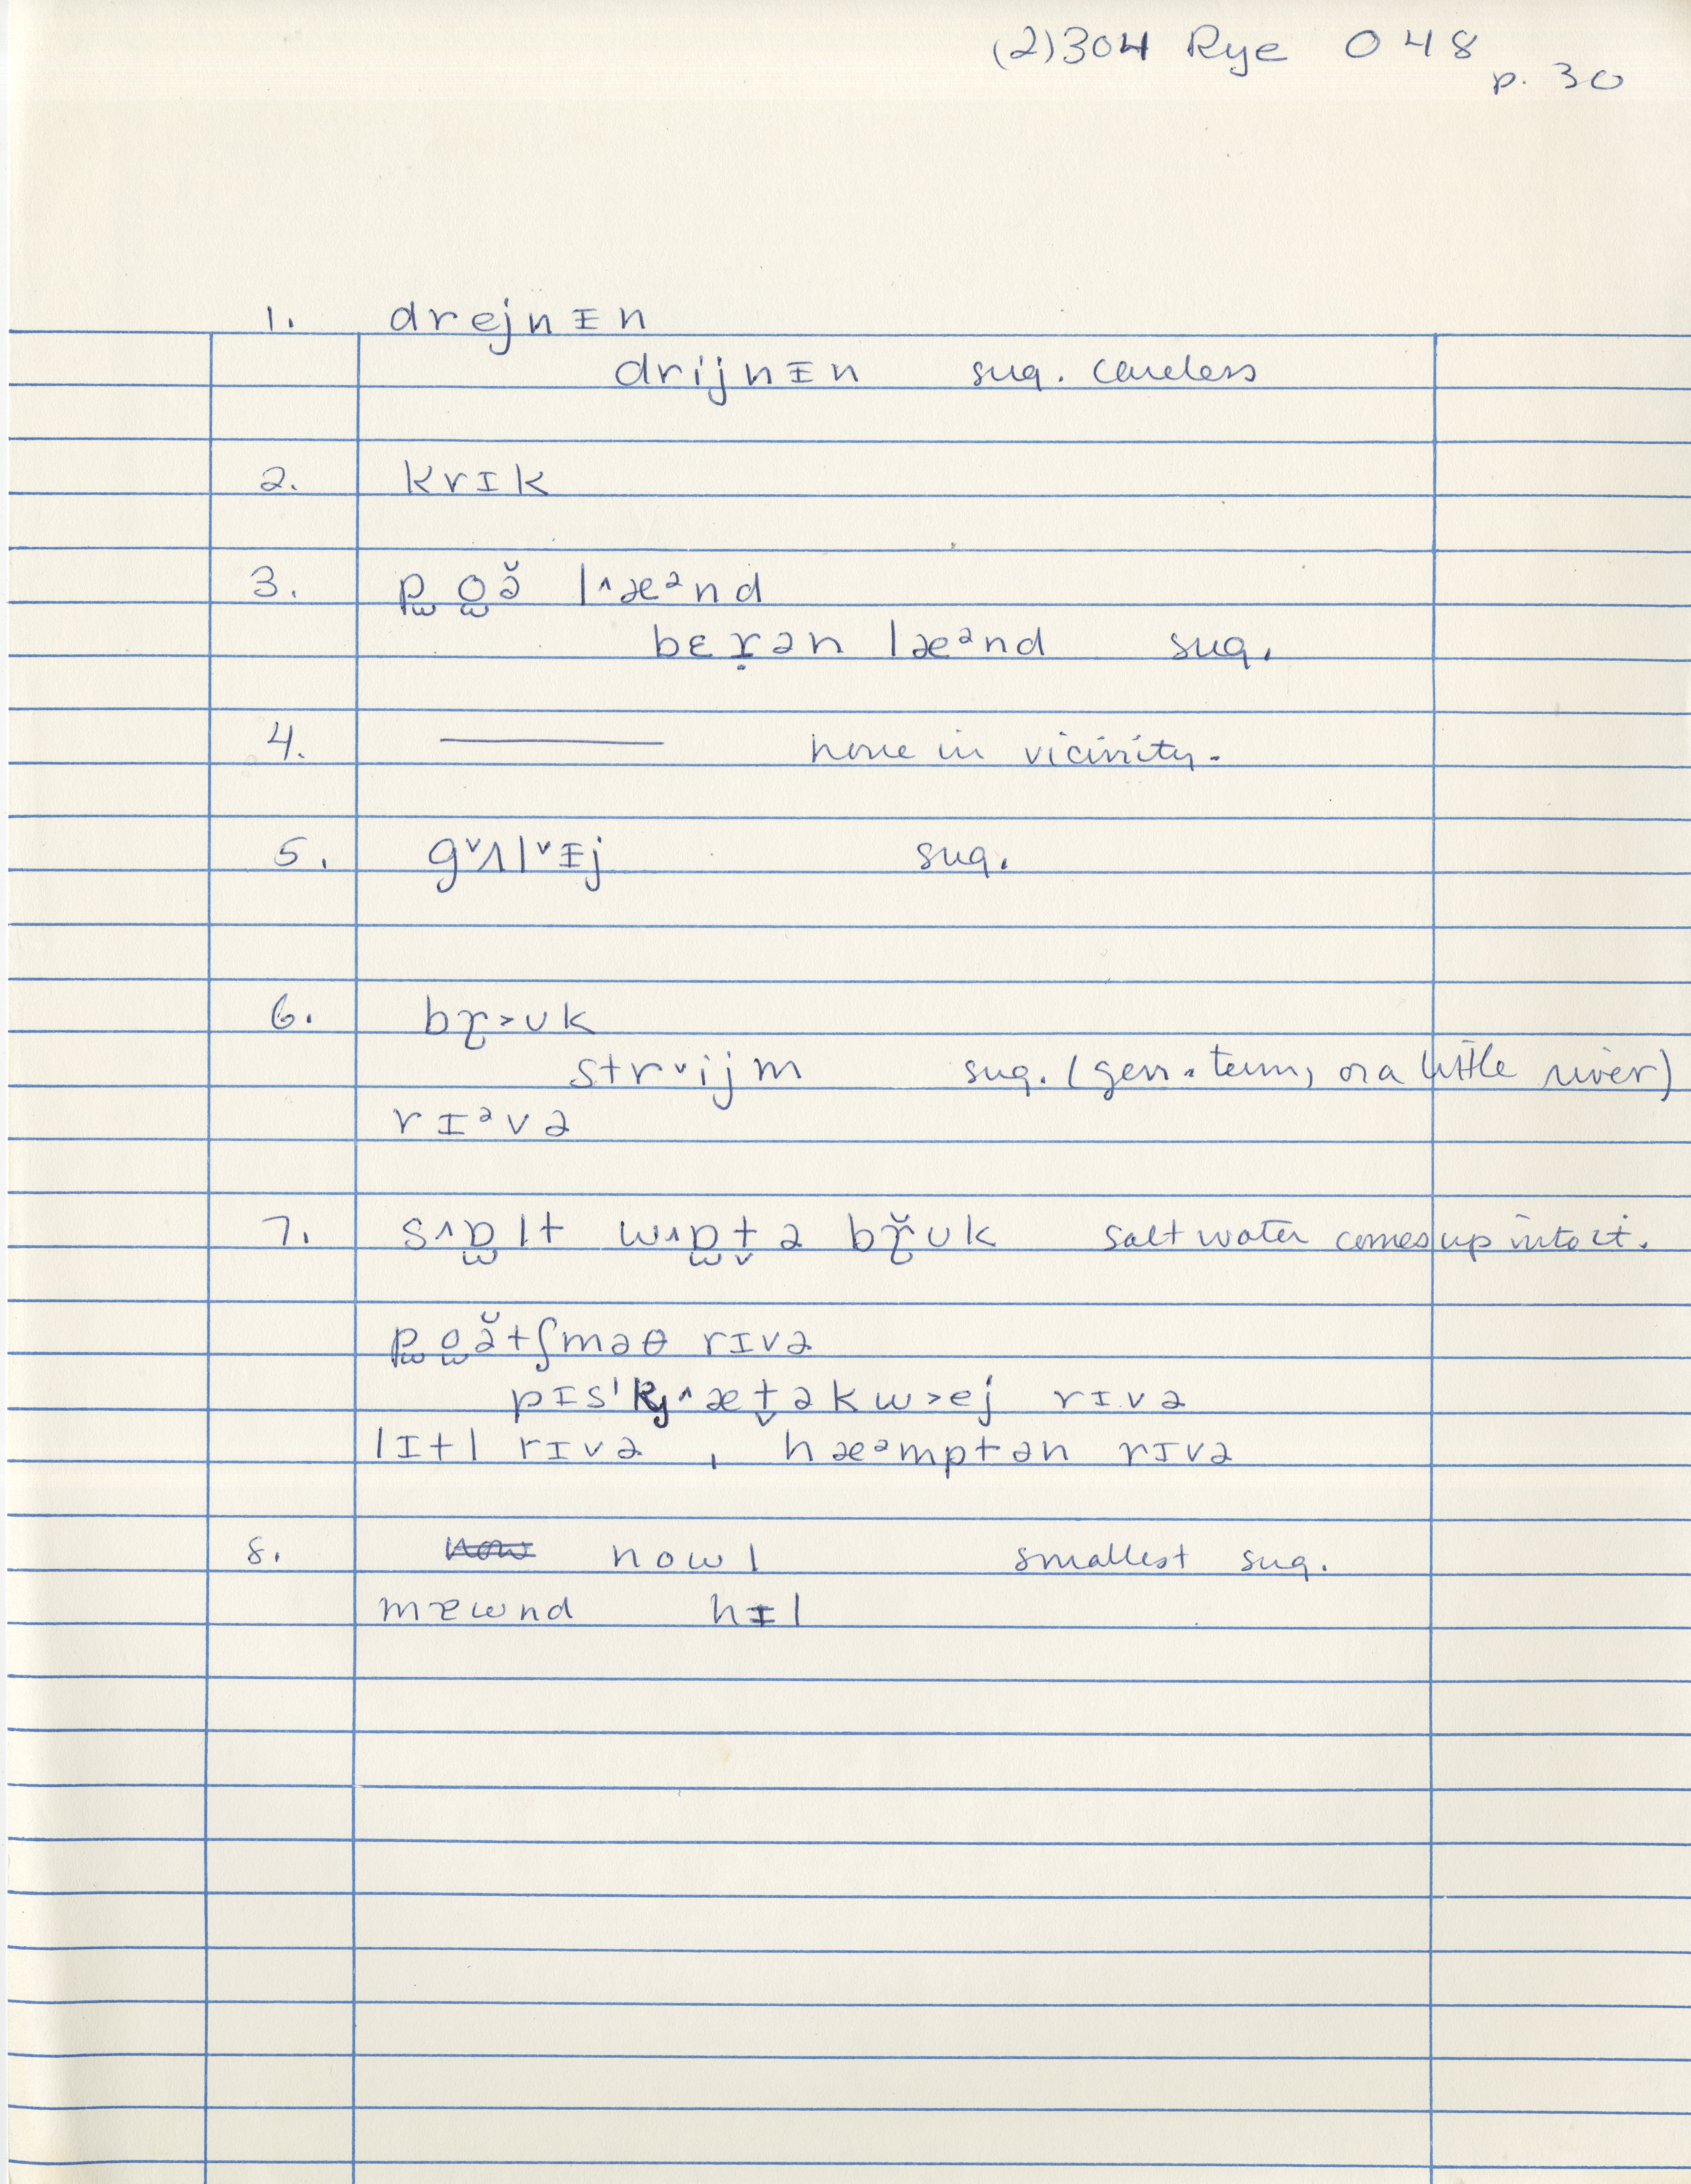 (2)304 Rye 048
p. 30
1. drejnᵻn
drijnᵻn sug. careless
2. krɪk
3. p̫o̫ə̆ l^æᵊnd
bɛṛən læᵊnd sug.
4. ——— none in vicinity.
5. g˅ʌl˅ᵻj sug.
6. bɽ˃ʊk
str˅ijm sug. (gen. term, or a little river)
rɪᵊvə
7. s^ɒ̫lt w^ɒ̫t̬ə bɽ̆ʊk salt water comes up into it.
p̫o̫ə̆tʃməθ rɪvə
pɪsˈkj^æt̬əkw˃ej rɪvə
lɪtl rɪvə , hæᵊmptən rɪvə
8. now nowl smallest sug.
mæwnd hᵻl